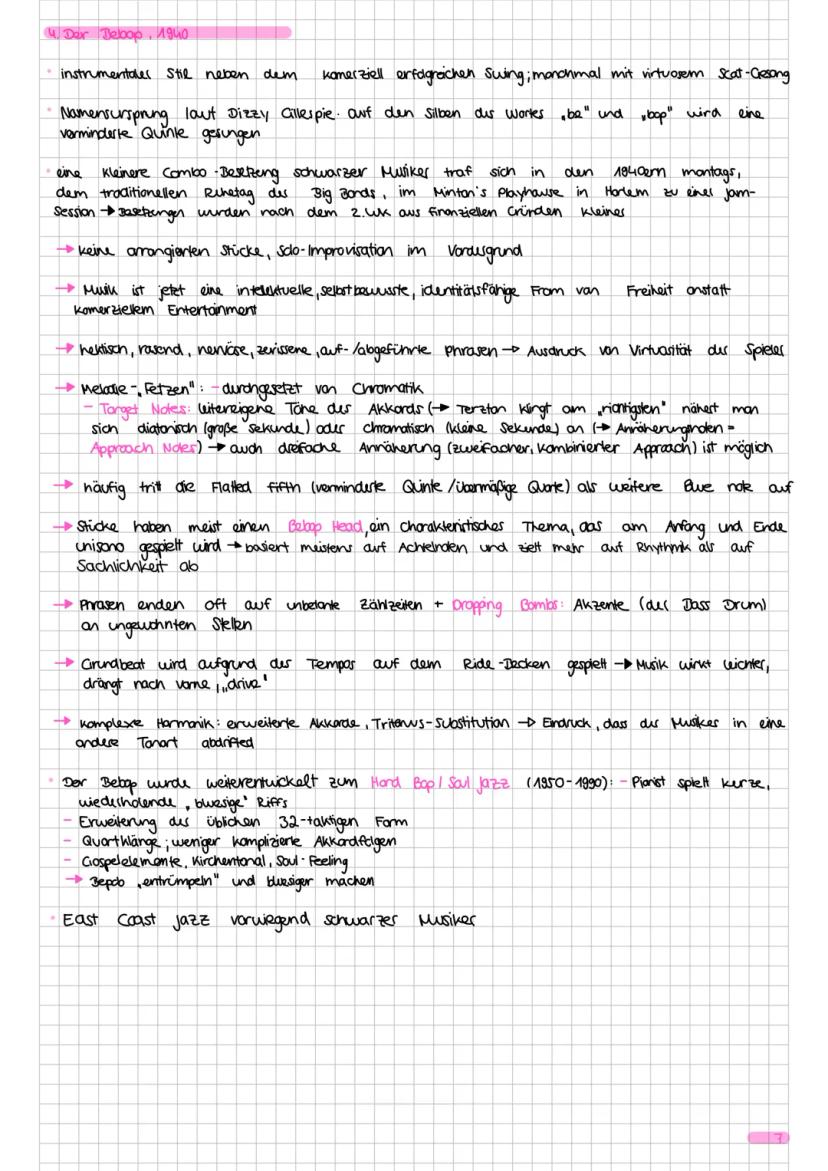 4. Der Bebop, 1940
• instrumentales Stil neben dem komerziell erfolgreichen Swing; manchmal mit virtuosem Scat-Gesang
• Namensursprung laut Dizzy Gillespie: auf den Silben des Wortes „be" und „bop" wird eine
verminderte Quinte gesungen
• eine kleinere Combo-Besetzung schwarzer Musiker traf sich in den 1940ern montags,
dem traditionellen Ruhetag des Big Bands, im Minton's Playhouse in Harlem zu einer Jam-
Session → Besetzungen wurden nach dem 2.WK aus finanziellen Gründen kleiner
→ keine arrangierten Stücke, Solo-Improvisation im Vordergrund
→ Musik ist jetzt eine intelektuelle, selbstbewusste, identitätsfähige From von Freiheit anstatt
komerziellem Entertainment
→ hektisch, rasend, nervöse, zerissene, auf-/abgeführte Phrasen → Ausdruck von Virtuosität des Spielers
→ Melodie-„Fetzen": - durchgesetzt von Chromatik
- Target Notes: leitereigene Töne des Akkords (→ Terzton klingt am „richtigsten" nähert man
sich diatonisch (große Sekunde) oder chromatisch (kleine Sekunde) an (→ Annäherungsnoten =
Approach Notes) → auch dreifache Annäherung (zweifacher, kombinierter Approach) ist möglich
→ häufig tritt die Flatted fifth (verminderte Quinte/übermäßige Quarte) als weitere Blue note auf
→ Stücke haben meist einen Bebop Head, ein charakteristisches Thema, das am Anfang und Ende
unisono gespielt wird → basiert meistens auf Achtelnoten und zielt mehr auf Rhythmik als auf
Sachlichkeit ab
→ Phrasen enden oft auf unbetonte Zählzeiten + Dropping Bombs: Akzente (der Bass Drum)
an ungewohnten Stellen
→ Grundbeat wird aufgrund des Tempos auf dem Ride-Becken gespielt → Musik wirkt leichter,
drängt nach vorne, „drive"
→ komplexe Harmonik: erweiterte Akkorde, Tritonus-Substitution → Eindruck, dass der Musiker in eine
andere Tonart abdrifted
• Der Bebop wurde weiterentwickelt zum Hard Bop/Soul Jazz (1950-1990): - Pianist spielt kurze,
wiederholende „bluesige" Riffs
- Erweiterung des üblichen 32-taktigen Form
- Quartklänge; weniger komplizierte Akkordfolgen
- Gospelelemente, Kirchentonal, Soul-Feeling
→ Bepob „entrümpeln" und bluesiger machen
• East Coast Jazz vorwiegend schwarzer Musiker
7